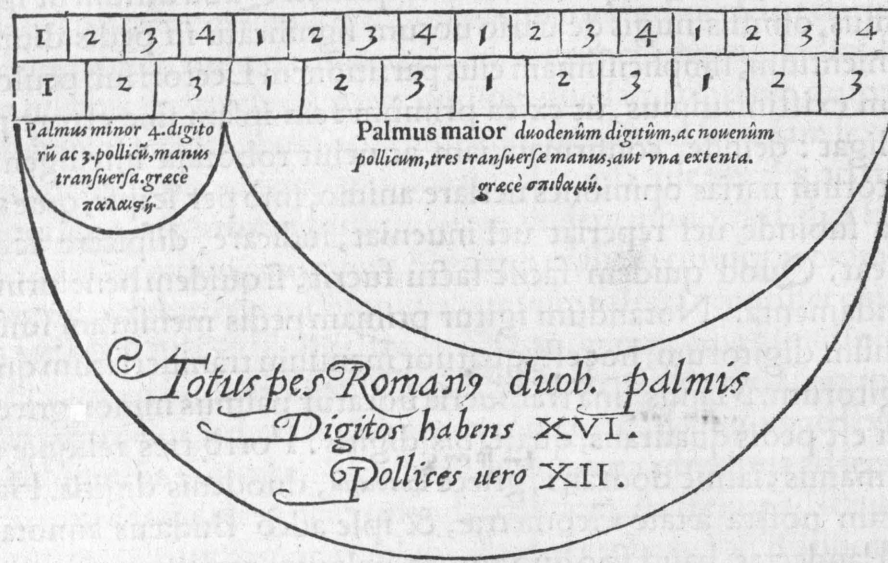 1 2 3 4 1 2 3 4 1 2 3 4 1 2 3 4
1 2 3 1 2 3 1 2 3 1 2 3
Palmus minor 4. digito
rũ ac 3. pollicũ, manus
tranſuerſa. græcè
παλαιςή.
Palmus maior duodenûm digitûm, ac nouenûm
pollicum, tres tranſuerſæ manus, aut vna extenta.
græcè σπιθαμή.
Totus pes Romanꝰ duob. palmis
Digitos habens XVI.
Pollices uero XII.